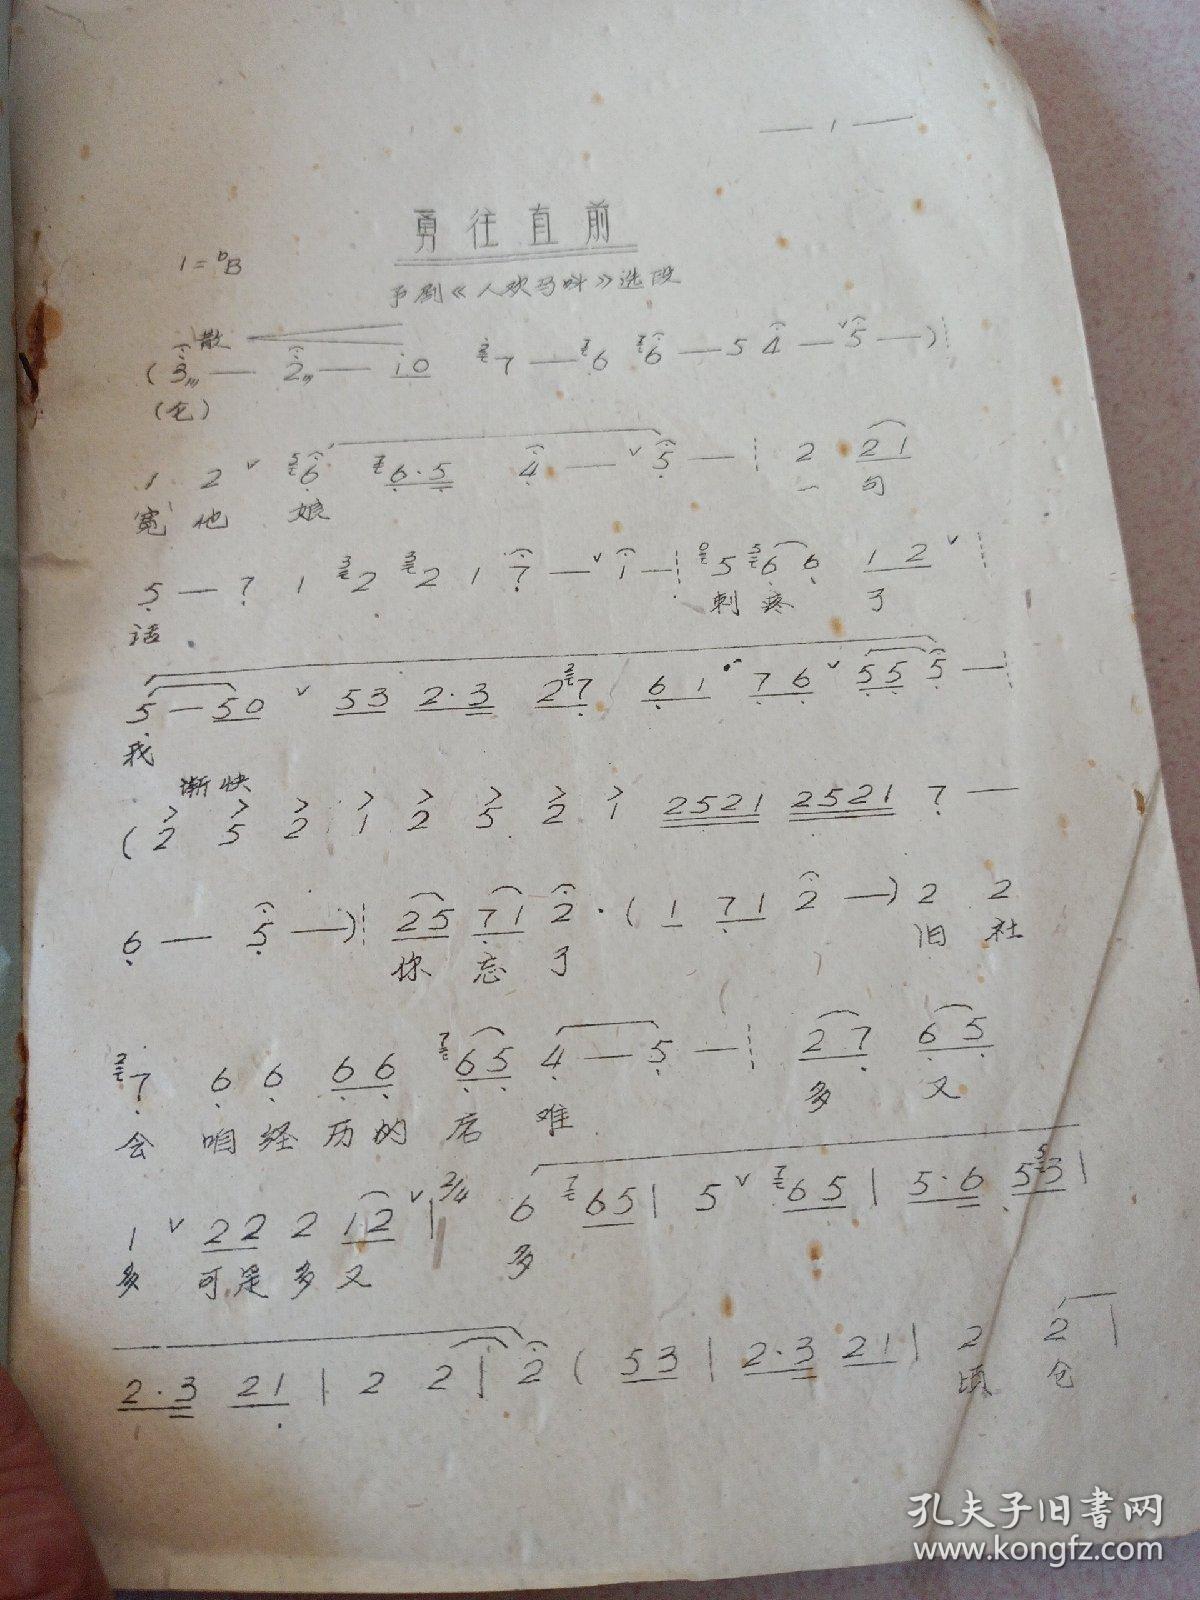 — 1 —
勇往直前
1=♭B
予剧《人欢马叫》选段
散
(3 — 2 — i 0 7 — 6 6 — 5 4 — ˇ5 —)
(仓)
1 2 ˇ 6 6·5 4 — ˇ5 — 2 2 1
宽 他 娘 一 句
5 — 7 1 2 2 1 7 — ˇ1 — 5 6 6 1 2 ˇ
话 刺 疼 了
5 — 5 0 ˇ 5 3 2·3 2 7 6 1 7 6 ˇ 5 5 5 —
我
渐快
(2 5 2 1 2 5 2 1 2521 2521 7 —
6 — 5 —) 2 5 7 1 2·(1 7 1 2 —) 2 2
你 忘 了 旧 社
7 6 6 6 6 6 5 4 — 5 — 2 7 6 5
会 咱 经 历 的 苦 难 多 又
1 ˇ 2 2 2 1 2 ˇ | 2/4 6 6 5 | 5 ˇ 6 5 | 5·6 5 3 |
多 可 是 多 又 多
2·3 2 1 | 2 2 | 2 (5 3 | 2·3 2 1 | 2 2 |
仓
孔夫子旧书网
www.kongfz.com